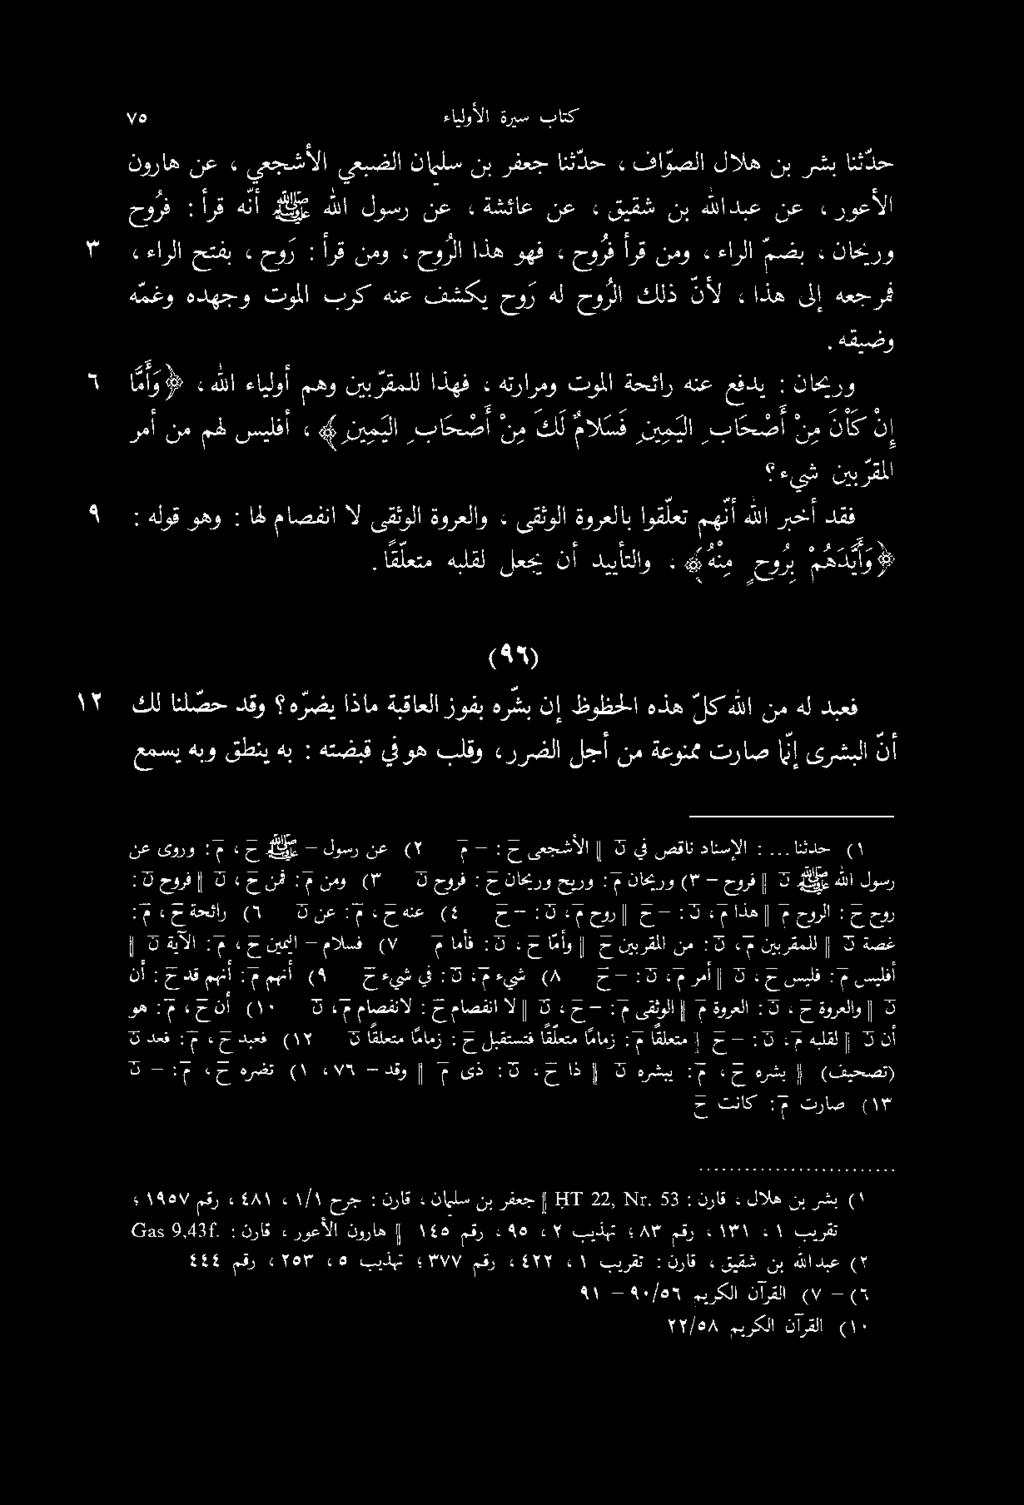 كتاب سيرة الأولياء ٧٥
حدّثنا بشر بن هلال الصوّاف ، حدّثنا جعفر بن سليمان الضبعي الأشجعي ، عن هارون
الأعور ، عن عبدالله بن شقيق ، عن عائشة ، عن رسول الله ﷺ أنّه قرأ : فرُوح
وريحان ، بضمّ الراء ، ومن قرأ فرُوح ، فهو هذا الرُوح ، ومن قرأ : رَوح ، بفتح الراء ، ٣
فمرجعه إلى هذا ، لأنّ ذلك الرُوح له رَوح يكشف عنه كرب الموت وجهده وغمّه
وضيقه .
وريحان : يدفع عنه رائحة الموت ومرارته ، فهذا للمقرّبين وهم أولياء الله ، ﴿وَأَمَّا ٦
إِنْ كَانَ مِنْ أَصْحَابِ اليَمِينِ فَسَلامٌ لَكَ مِنْ أَصْحَابِ اليَمِينِ﴾ ، أفليس لهم من أمر
المقرّبين شيء ؟
فقد أخبر الله أنّهم تعلّقوا بالعروة الوثقى ، والعروة الوثقى لا انفصام لها : وهو قوله : ٩
﴿وَأَيَّدَهُمْ بِرُوحٍ مِنْهُ﴾ ، والتأييد أن يجعل لقلبه متعلّقاً .
(٩٦)
فعبد له من الله كلّ هذه الحظوظ إن بشّره بفوز العاقبة ماذا يضرّه ؟ وقد حصّلنا لك ١٢
أنّ البشرى إنّما صارت ممنوعة من أجل الضرر ، وقلب هو في قبضته : به ينطق وبه يسمع
١) حدثنا ... : الإسناد ناقص في ن || الأشجعي ح : – م ٢) عن رسول – ﷺ ح ، م : وروى عن
رسول الله ﷺ ن || فروح – ٣) وريحان م : وريح وريحان ح : فروح ن ٣) ومن م : فمن ح ، ن || فروح ن :
روح ح : الروح م || هذا م ، ن : – ح || روح م ، ن : – ح ٤) عنه ح ، م : عن ن ٦) رائحة ح ، م :
غصة ن || للمقربين م ، ن : من المقربين ح || وأما ح ، ن : فأما م ٧) فسلام – اليمين ح ، م : الآية ن ||
أفليس م : فليس ح ، ن || أمر م ، ن : – ح ٨) شيء م ، ن : في شيء ح ٩) أنهم م : أنهم قد ح : أن
ن || والعروة ح ، ن : العروة م || الوثقى م : – ح ، ن || لا انفصام ح : لانفصام م ، ن ١٠) أن ح ، م : هو
أن ن || لقلبه م ، ن : – ح || متعلقاً م : زماماً متعلقاً فتستقبل ح : زماماً متعلقاً ن ١٢) فعبد ح ، م : فعد ن
(تصحيف) || بشره ح ، م : يبشره ن || ذا ح ، ن : ذى م || وقد – ٧٦ ، ١) تضره ح ، م : – ن
١٣) صارت م : كانت ح
١) بشر بن هلال ، قارن : HT 22, Nr. 53 || جعفر بن سليمان ، قارن : جرح ١/١ ، ٤٨١ ، رقم ١٩٥٧ ؛
تقريب ١ ، ١٣١ ، رقم ٨٣ ؛ تهذيب ٢ ، ٩٥ ، رقم ١٤٥ || هارون الأعور ، قارن : Gas 9,43f.
٢) عبدالله بن شقيق ، قارن : تقريب ١ ، ٤٢٢ ، رقم ٣٧٧ ؛ تهذيب ٥ ، ٢٥٣ ، رقم ٤٤٤
٦) – ٧) القرآن الكريم ٥٦/٩٠ – ٩١
١٠) القرآن الكريم ٥٨/٢٢